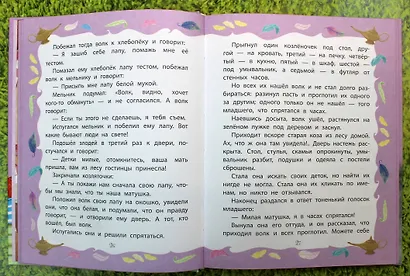 Побежал тогда волк к хлебопёку и говорит:
— Я зашиб себе лапу, помажь мне её
тестом.
Помазал ему хлебопёк лапу тестом, побежал
волк к мельнику и говорит:
— Присыпь мне лапу белой мукой.
Мельник подумал: «Волк, видно, хочет
кого-то обмануть» — и не согласился. А волк
говорит:
— Если ты этого не сделаешь, я тебя съем.
Испугался мельник и побелил ему лапу. Вот
какие бывают люди на свете!
Подошёл злодей в третий раз к двери, по-
стучался и говорит:
— Детки милые, отомкнитесь, ваша мать
пришла, вам из лесу гостинцы принесла!
Закричали козляточки:
— А ты покажи нам сначала свою лапу, что-
бы мы знали, что ты наша матушка.
Положил волк свою лапу на окошко, увидели
они, что она белая, и подумали, что он правду
говорит, — и отворили ему дверь. А тот, кто
вошёл, был волк.
Испугались они и решили спрятаться.
Прыгнул один козлёночек под стол, дру-
гой — на кровать, третий — на печку, четвёр-
тый — в кухню, пятый — в шкаф, шестой —
под умывальник, а седьмой — в футляр от
стенных часов.
Но всех их нашёл волк и не стал долго раз-
бираться: разинул пасть и проглотил их одного
за другим; одного только он не нашёл, того
младшего, что спрятался в часах.
Наевшись досыта, волк ушёл, растянулся на
зелёном лужке под деревом и заснул.
Приходит вскоре старая коза из лесу домой.
Ах, что ж она там увидела! Дверь настежь рас-
крыта. Стол, стулья, скамьи опрокинуты, умы-
вальник разбит, подушки и одеяла с постели
сброшены.
Стала она искать своих деток, но найти их
нигде не могла. Стала она их кликать по име-
нам, но никто не отзывался.
Наконец раздался в ответ тоненький голосок
младшего:
— Милая матушка, я в часах спрятался!
Вынула она его оттуда, и он рассказал, что
приходил волк и всех проглотил. Можете себе